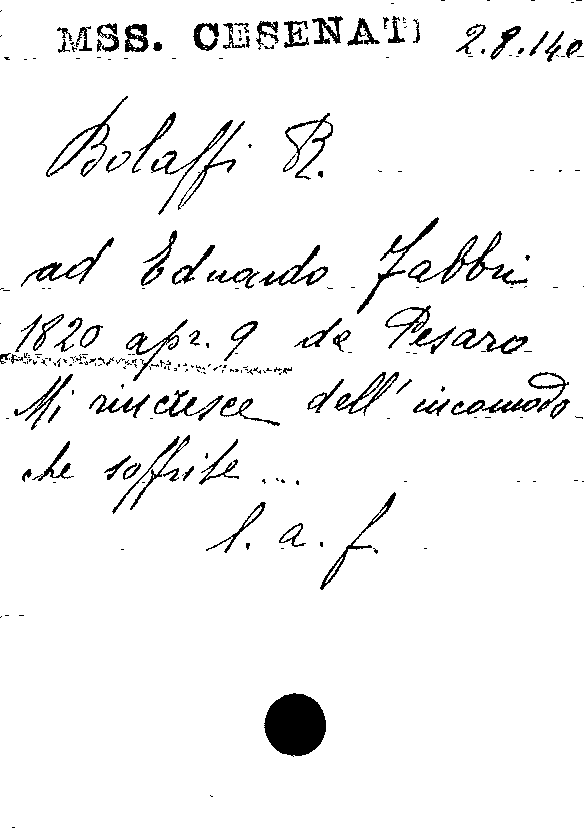 MSS. CESENATI 2.8.140
Bolaffi R.
ad Eduardo Fabbri
1820 apr. 9 da Pesaro
Mi rincresce dell'incomodo
che soffrite...
l. a. f.